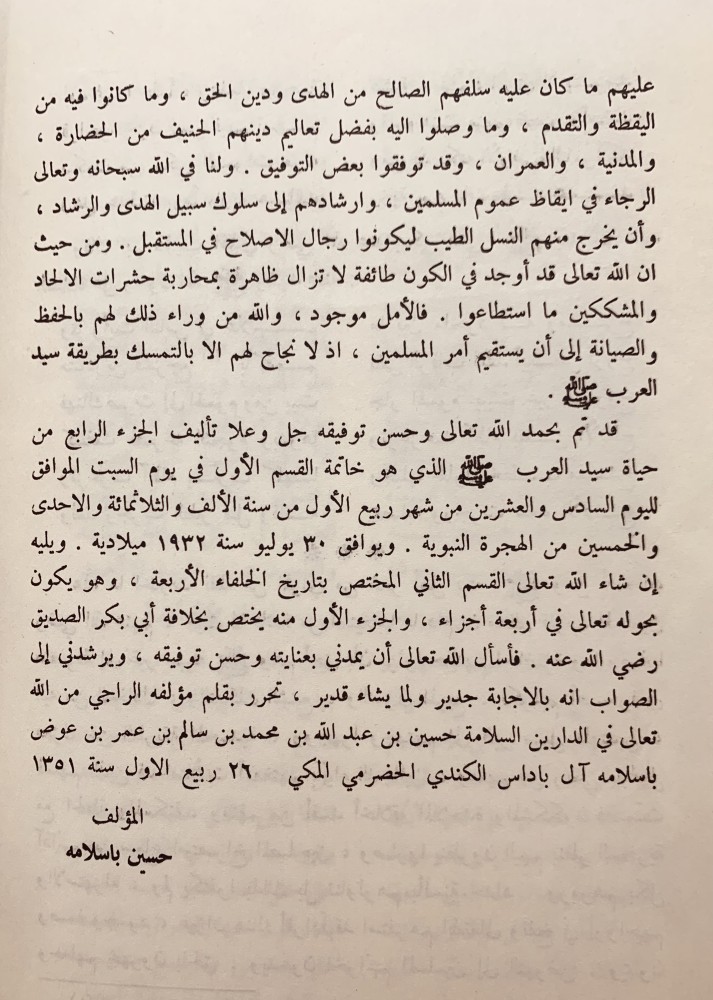 عليهم ما كان عليه سلفهم الصالح من الهدى ودين الحق ، وما كانوا فيه من
اليقظة والتقدم ، وما وصلوا اليه بفضل تعاليم دينهم الحنيف من الحضارة ،
والمدنية ، والعمران ، وقد توفقوا بعض التوفيق . ولنا في الله سبحانه وتعالى
الرجاء في ايقاظ عموم المسلمين ، وارشادهم إلى سلوك سبيل الهدى والرشاد ،
وأن يخرج منهم النسل الطيب ليكونوا رجال الاصلاح في المستقبل . ومن حيث
ان الله تعالى قد أوجد في الكون طائفة لا تزال ظاهرة بمحاربة حشرات الالحاد
والمشككين ما استطاعوا . فالأمل موجود ، والله من وراء ذلك لهم بالحفظ
والصيانة إلى أن يستقيم أمر المسلمين ، اذ لا نجاح لهم الا بالتمسك بطريقة سيد
العرب ﷺ .
قد تم بحمد الله تعالى وحسن توفيقه جل وعلا تأليف الجزء الرابع من
حياة سيد العرب ﷺ الذي هو خاتمة القسم الأول في يوم السبت الموافق
لليوم السادس والعشرين من شهر ربيع الأول من سنة الألف والثلاثمائة والاحدى
والخمسين من الهجرة النبوية . ويوافق ٣٠ يوليو سنة ١٩٣٢ ميلادية . ويليه
إن شاء الله تعالى القسم الثاني المختص بتاريخ الخلفاء الأربعة ، وهو يكون
بحوله تعالى في أربعة أجزاء ، والجزء الأول منه يختص بخلافة أبي بكر الصديق
رضي الله عنه . فأسأل الله تعالى أن يمدني بعنايته وحسن توفيقه ، ويرشدني إلى
الصواب انه بالاجابة جدير ولما يشاء قدير ، تحرر بقلم مؤلفه الراجي من الله
تعالى في الدارين السلامة حسين بن عبد الله بن محمد بن سالم بن عمر بن عوض
باسلامه آل باداس الكندي الحضرمي المكي ٢٦ ربيع الاول سنة ١٣٥١
المؤلف
حسين باسلامه